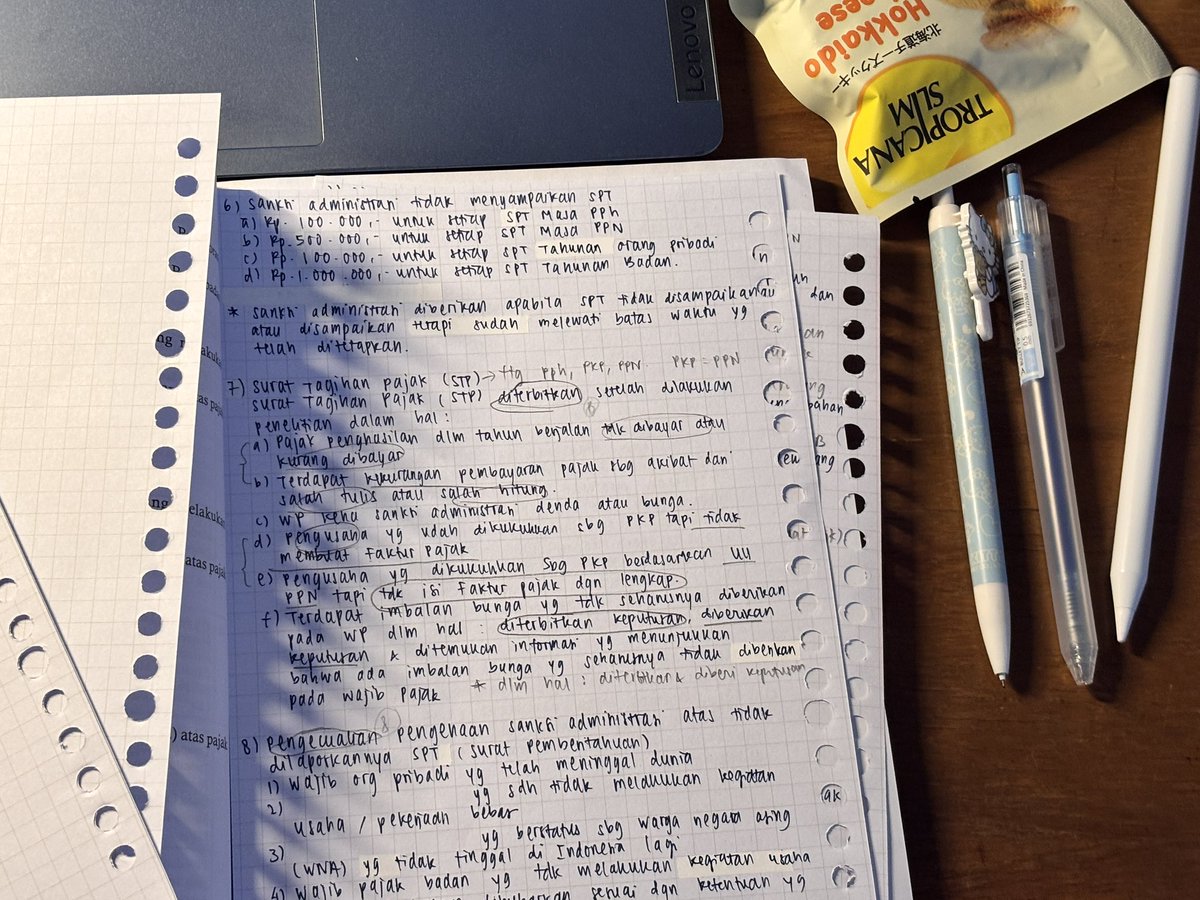 Lenovo
Hokkaido
北海道チーズクッキー
TROPICANA
SLIM
6) Sanksi administrasi tidak menyampaikan SPT
a) Rp. 100.000,- untuk setiap SPT Masa PPh
b) Rp. 500.000,- untuk setiap SPT Masa PPN
c) Rp. 100.000,- untuk setiap SPT Tahunan orang pribadi
d) Rp. 1.000.000,- untuk setiap SPT Tahunan Badan.
* Sanksi administrasi diberikan apabila SPT tidak disampaikan
atau disampaikan tetapi sudah melewati batas waktu yg
telah ditetapkan.
7) Surat Tagihan pajak (STP) → ttg pph, PKP, PPN PKP = PPN
Surat Tagihan Pajak (STP) diterbitkan setelah dilakukan
penelitian dalam hal :
a) Pajak penghasilan dlm tahun berjalan tdk dibayar atau
kurang dibayar
b) Terdapat kekurangan pembayaran pajak sbg akibat dari
salah tulis atau salah hitung.
c) WP kena sanksi administrasi denda atau bunga.
d) Pengusaha yg udah dikukuhkan sbg PKP tapi tidak
membuat Faktur Pajak
e) Pengusaha yg dikukuhkan sbg PKP berdasarkan UU
PPN tapi tdk isi Faktur pajak dgn lengkap.
f) Terdapat imbalan bunga yg tdk seharusnya diberikan
pada WP dlm hal : diterbitkan keputusan, diberikan
keputusan & ditemukan informasi yg menunjukkan
bahwa ada imbalan bunga yg seharusnya tidak diberikan
pada wajib pajak * dlm hal : diterbitkan & diberi keputusan
8) Pengecualian pengenaan sanksi administrasi atas tidak
dilaporkannya SPT (Surat Pemberitahuan)
1) Wajib org pribadi yg telah meninggal dunia
2) yg sdh tidak melakukan kegiatan
usaha / pekerjaan bebas
3) yg berstatus sbg warga negara asing
(WNA) yg tidak tinggal di Indonesia lagi
4) Wajib pajak badan yg tdk melakukan kegiatan usaha
sesuai dgn ketentuan yg
elakukan
atas pajak
) atas pajak